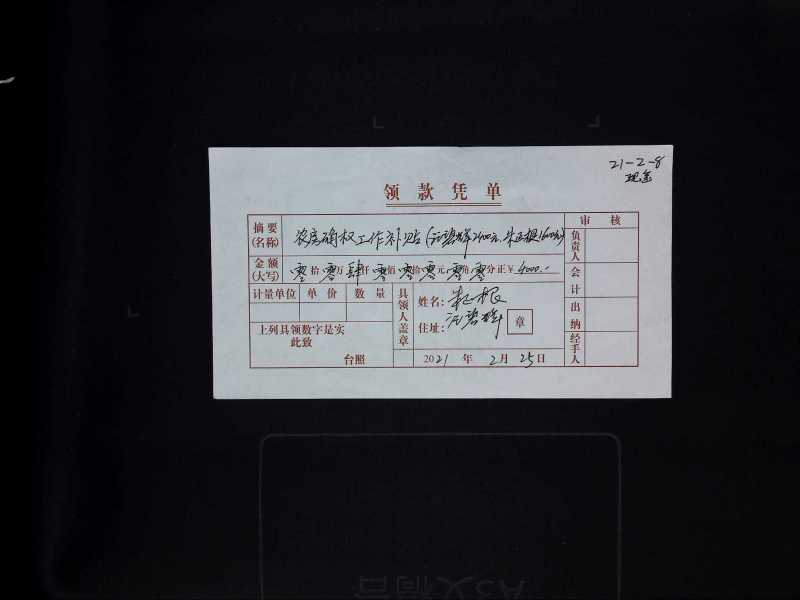 21-2-8
现金
领款凭单
摘要(名称) 农房确权工作补贴(汪碧辉2400元.朱正根1600元)
审核
负责人
金额(大写) 零拾零万肆仟零佰零拾零元零角零分正¥4000.-
会计
计量单位 单价 数量
具领人盖章
姓名: 朱正根
汪碧辉
住址: 章
出纳
上列具领数字是实
此致
台照
2021年2月25日
经手人
A3文稿台